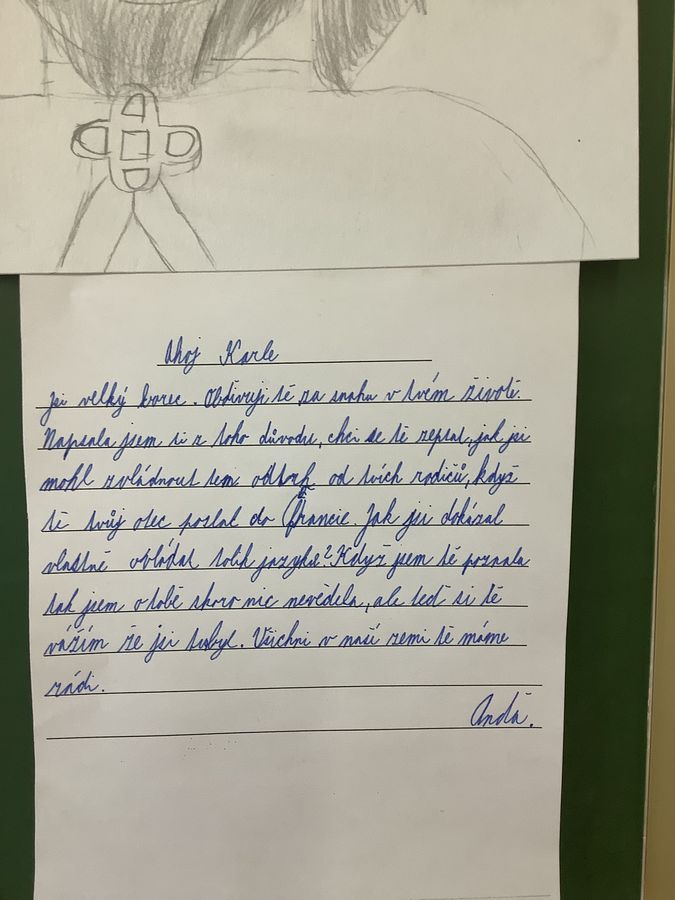 Ahoj Karle
jsi velký borec. Obdivuji tě za snahu v tvém životě.
Napsala jsem ti z toho důvodu, chci se tě zeptat, jak jsi
mohl zvládnout ten odtrh od tvích rodičů, když
tě tvůj otec poslal do Francie. Jak jsi dokázal
vlastně ovládat tolik jazyků? Když jsem tě poznala
tak jsem o tobě skoro nic nevěděla, ale teď si tě
vážím že jsi tu byl. Všichni v naší zemi tě máme
rádi.